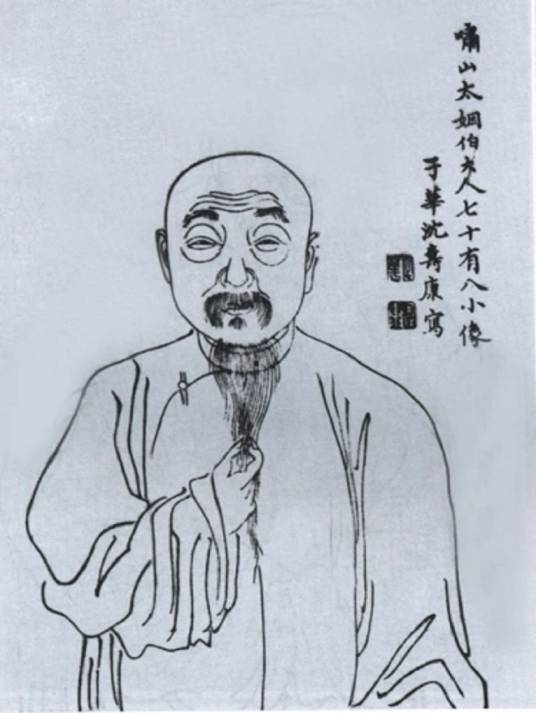 嘯山太姻伯大人七十有八小像
子華沈壽康寫